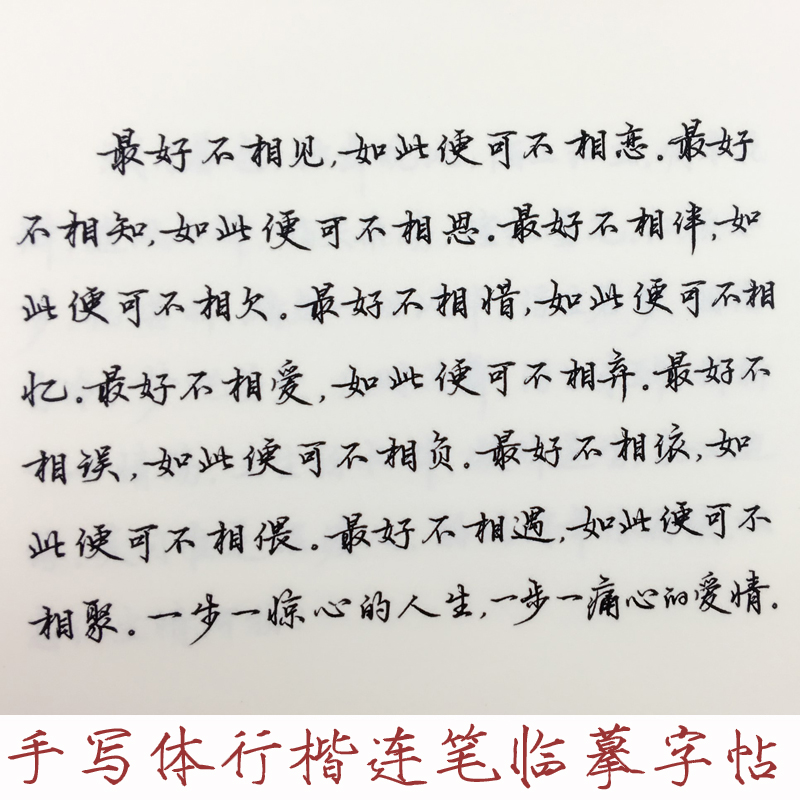 最好不相见,如此便可不相恋。最好
不相知,如此便可不相思。最好不相伴,如
此便可不相欠。最好不相惜,如此便可不相
忆。最好不相爱,如此便可不相弃。最好不
相误,如此便可不相负。最好不相依,如
此便可不相偎。最好不相遇,如此便可不
相聚。一步一惊心的人生,一步一痛心的爱情。
手写体行楷连笔临摹字帖